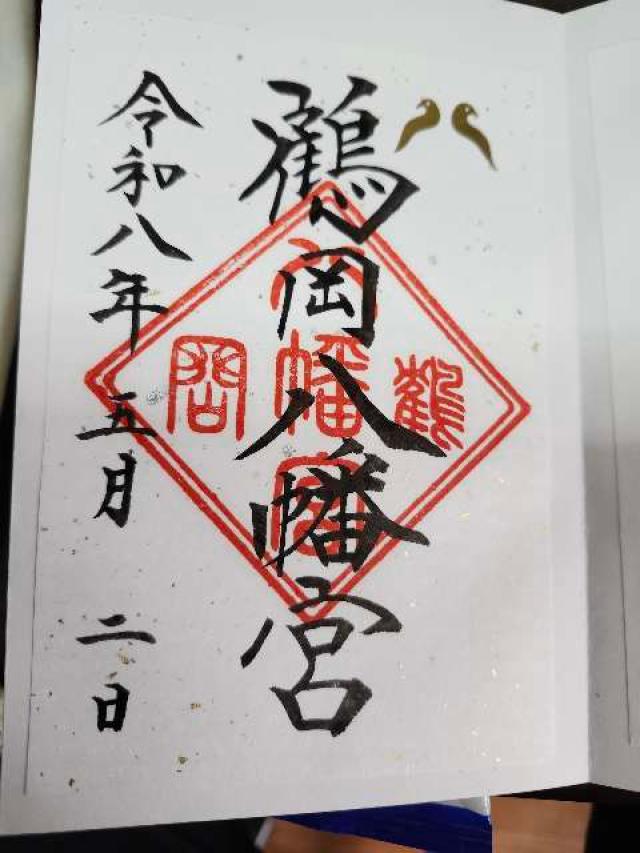 鶴岡八幡宮
鶴
八幡宮
岡
令和八年五月二日